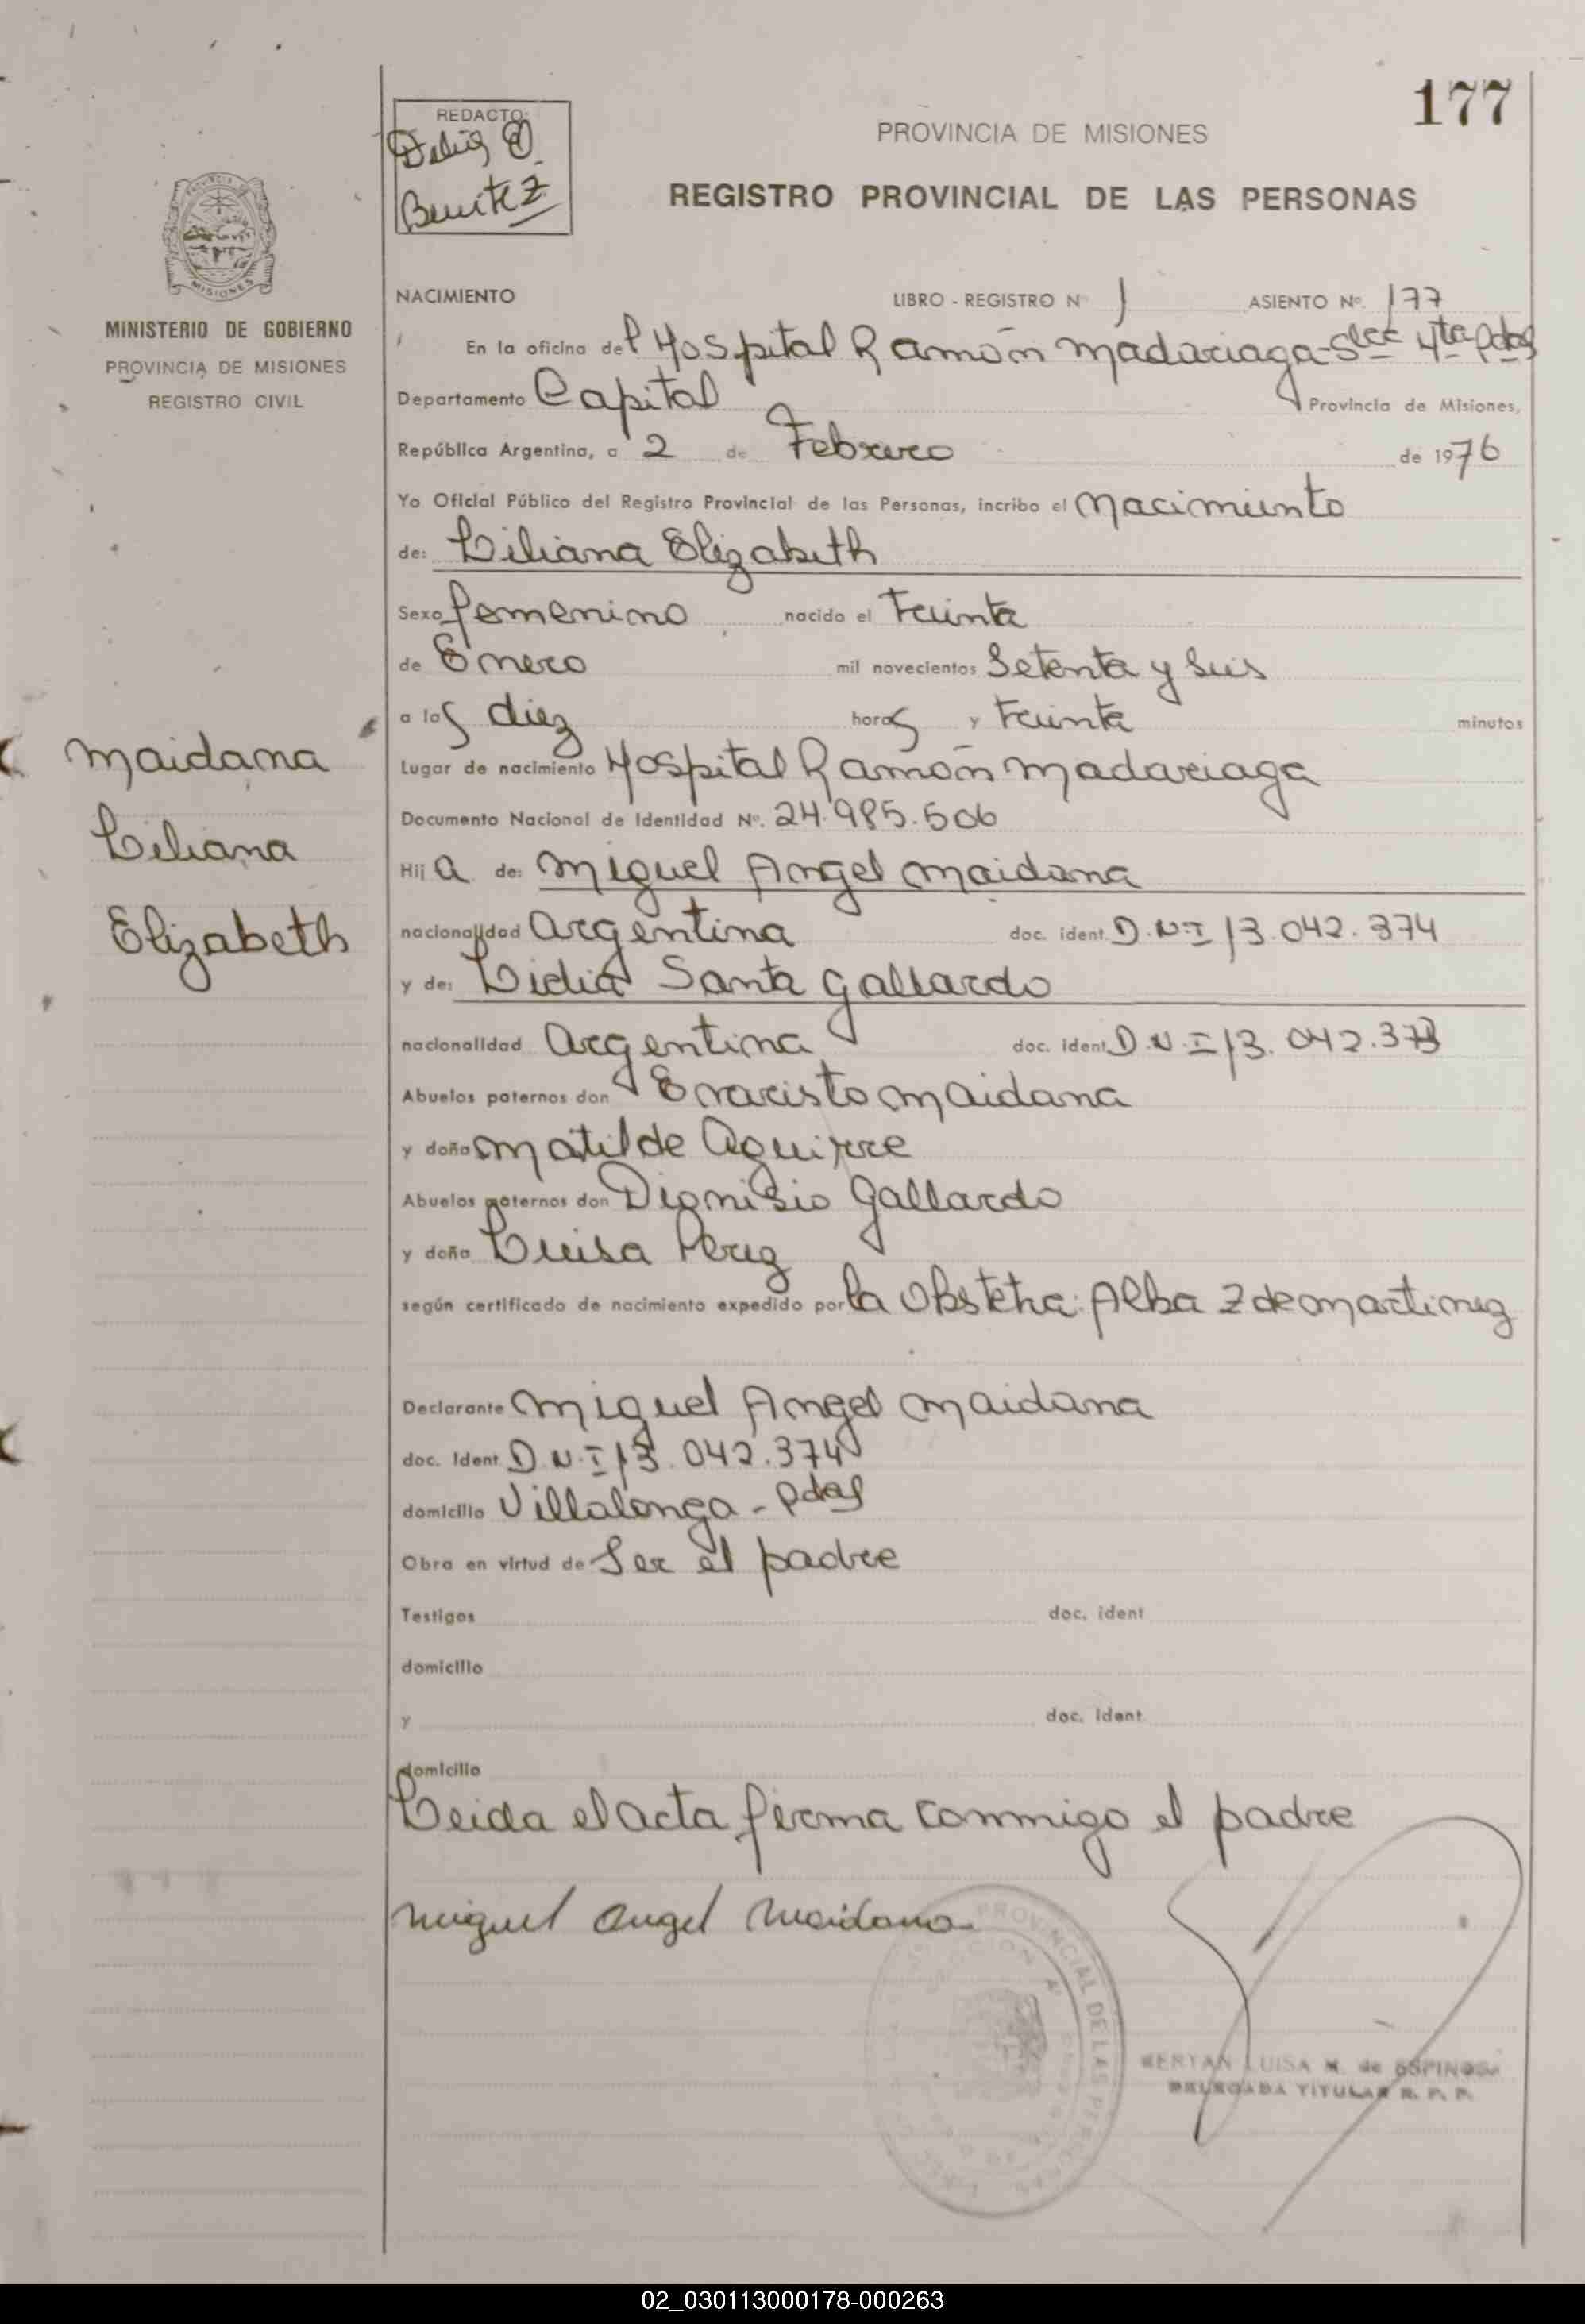 177
REDACTO:
Delia E.
Benitez
PROVINCIA DE MISIONES
REGISTRO PROVINCIAL DE LAS PERSONAS
MINISTERIO DE GOBIERNO
PROVINCIA DE MISIONES
REGISTRO CIVIL
NACIMIENTO LIBRO - REGISTRO N 1 ASIENTO Nº. 177
En la oficina del Hospital Ramón Madariaga - Secc 4ta Pdas
Departamento Capital Provincia de Misiones,
República Argentina, a 2 de Febrero de 1976
Yo Oficial Público del Registro Provincial de las Personas, incribo el Nacimiento
de: Liliana Elizabeth
Sexo femenino nacido el Treinta
de Enero mil novecientos Setenta y Seis
a las diez horas y Treinta minutos
Lugar de nacimiento Hospital Ramón Madariaga
Documento Nacional de Identidad Nº. 24.985.506
Hija de: Miguel Angel Maidana
nacionalidad Argentina doc. ident. D.N.I 13.042.374
y de: Lidia Santa Gallardo
nacionalidad Argentina doc. ident. D.N.I 13.042.373
Abuelos paternos don Evaristo Maidana
y doña Matilde Aguirre
Abuelos maternos don Dionisio Gallardo
y doña Luisa Perez
según certificado de nacimiento expedido por la Obstetra: Alba Z de Martinez
Declarante Miguel Angel Maidana
doc. Ident. D.N.I 13.042.374
domicilio Villalonga - Pdas
Obra en virtud de Ser el padre
Testigos doc. ident
domicilio
y doc. ident.
domicilio
Leida el acta firma conmigo el padre
Miguel Angel Maidana
Maidana
Liliana
Elizabeth
PROVINCIAL DE LAS PERSONAS
LUISA M. de ESPINOSA
DELEGADA TITULAR R. P. P.
02_030113000178-000263